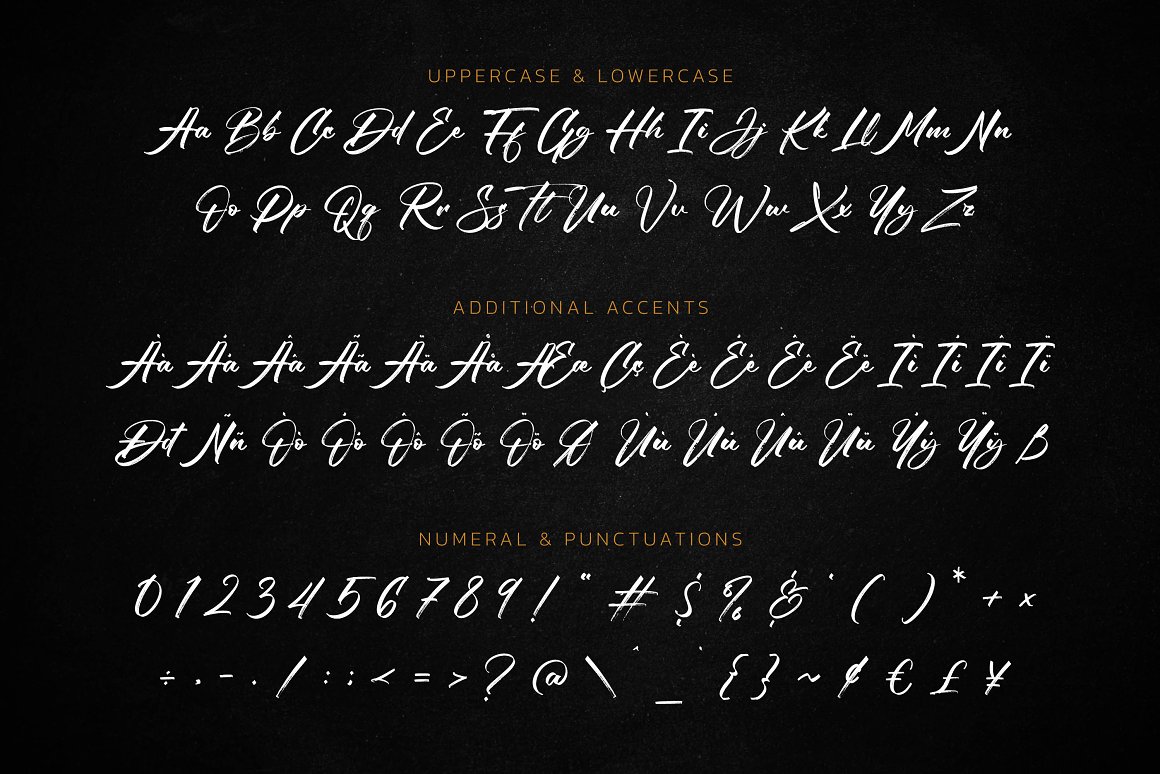 UPPERCASE & LOWERCASE
Aa Bb Cc Dd Ee Ff Gg Hh Ii Jj Kk Ll Mm Nn
Oo Pp Qq Rr Ss Tt Uu Vv Ww Xx Yy Zz
ADDITIONAL ACCENTS
Àà Áá Ââ Ãã Ää Åå Ææ Çç Èè Éé Êê Ëë Ìì Íí Îî Ïï
Đđ Ññ Òò Óó Ôô Õõ Öö Ø Ùù Úú Ûû Üü Ýý Ÿÿ ß
NUMERAL & PUNCTUATIONS
0 1 2 3 4 5 6 7 8 9 ! " # $ % & ' ( ) * + ×
÷ , - . / : ; < = > ? @ \ ^ _ ` { } ~ ¢ € £ ¥